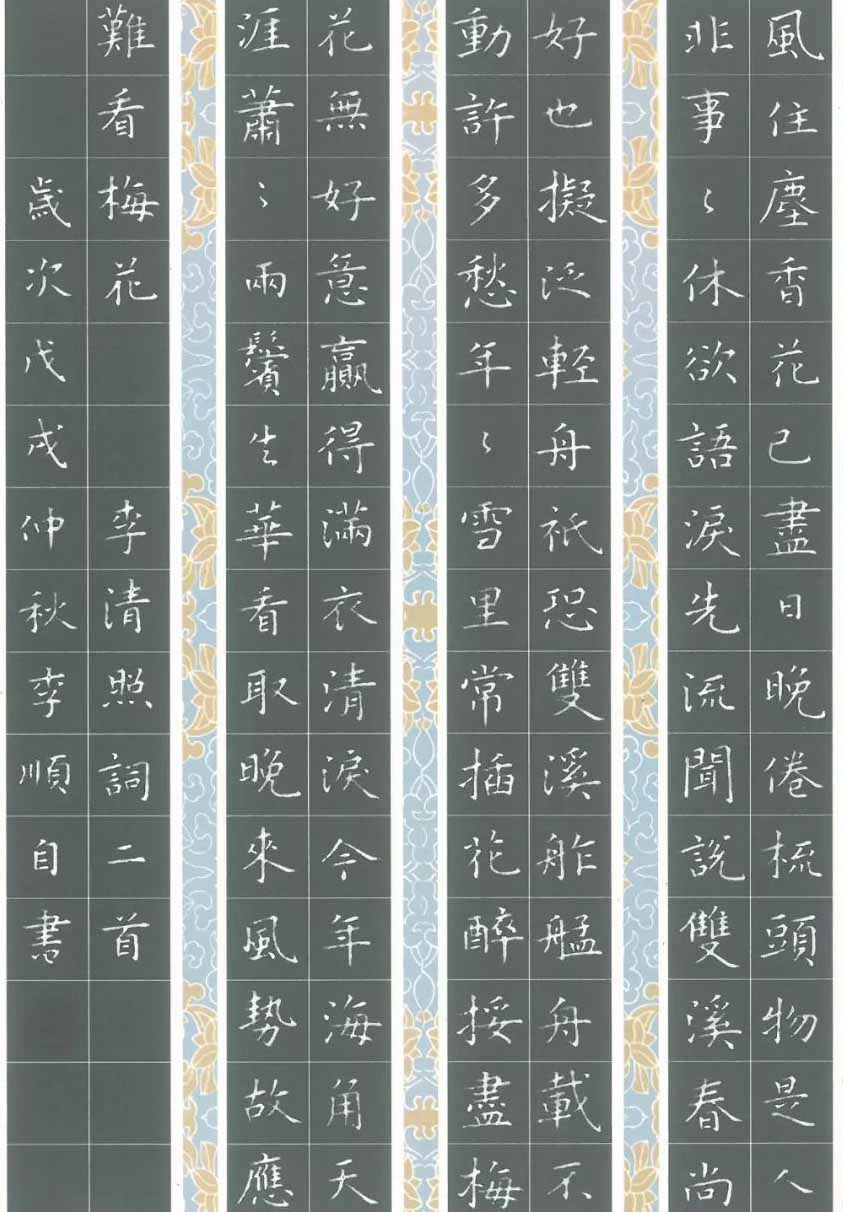 風住塵香花已盡日晚倦梳頭物是人
非事〻休欲語淚先流聞說雙溪春尚
好也擬泛輕舟祇恐雙溪舴艋舟載不
動許多愁年〻雪里常插花醉挼盡梅
花無好意贏得滿衣清淚今年海角天
涯蕭〻兩鬢生華看取晚來風勢故應
難看梅花 李清照詞二首
歲次戊戌仲秋李順自書